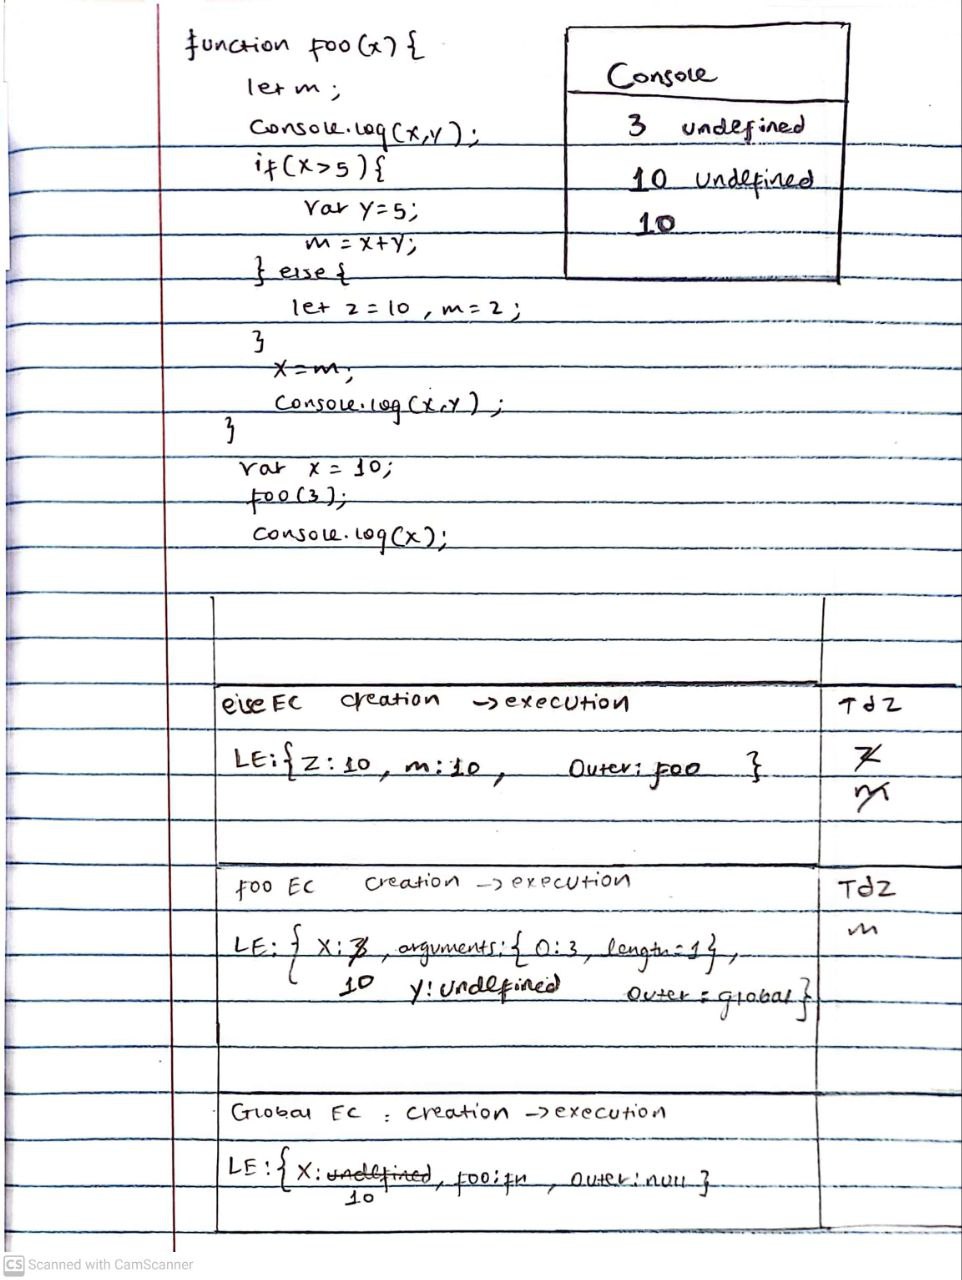 function foo(x){
let m;
Console.log(x,y);
if(x>5){
var y=5;
m=x+y;
} else {
let z=10, m=2;
}
x=m;
Console.log(x,y);
}
var x = 10;
foo(3);
Console.log(x);
Console
3 undefined
10 undefined
10
else EC creation -> execution
LE:{ z:10, m:10, Outer: foo }
TdZ
z
m
foo EC creation -> execution
LE: { x:3, arguments:{ 0:3, length=1},
10 y:undefined Outer = global}
TdZ
m
Global EC : creation -> execution
LE:{ x:undefined, foo:fn, outer:null }
10
CS Scanned with CamScanner